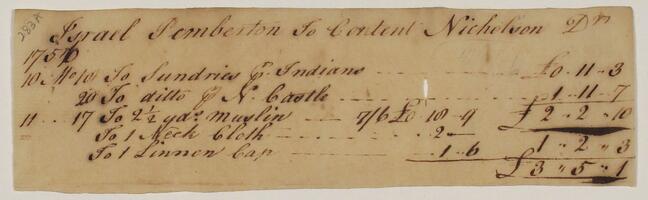 283A
Israel Pemberton To Content Nicholson Dr
1757
10 Mo 10 To Sundries ⅌ Indians £0 .. 11 .. 3
20 To ditto ⅌ N. Castle 1 .. 11 .. 7
11 .. 17 To 2½ yds muslin 7/6 £0 .. 18 .. 9 £2 .. 2 .. 10
To 1 Neck Cloth .. 2 ..
To 1 Linnen Cap .. 1 .. 6 1 .. 2 .. 3
£3 .. 5 .. 1